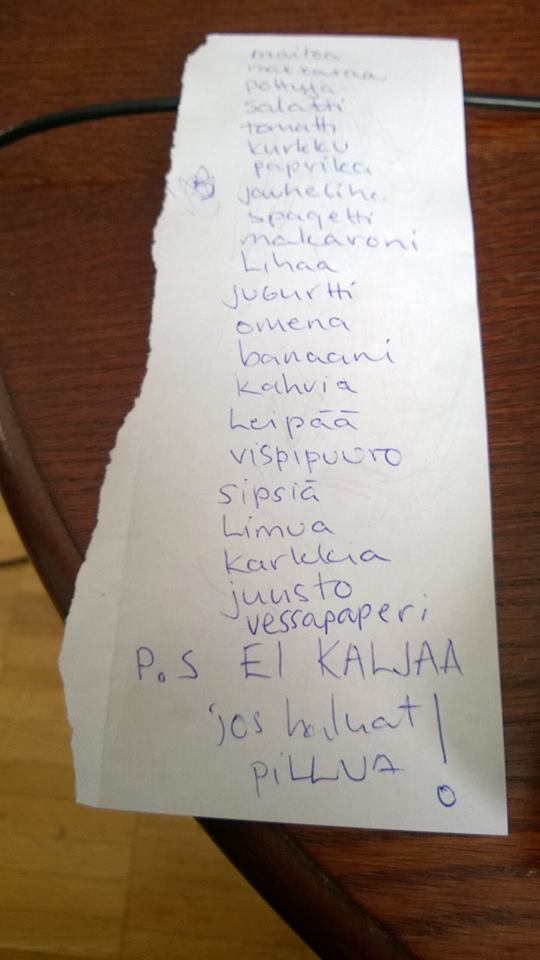 maitoa
makkaraa
pöttyjä
salatti
tomatti
kurkku
paprika
jauhelih.
spagetti
makaroni
Lihaa
jugurtti
omena
banaani
kahvia
Leipää
vispipuuro
sipsiä
Limua
karkkia
juusto
vessapaperi
P.S EI KALJAA
jos haluat
PiLLUA !